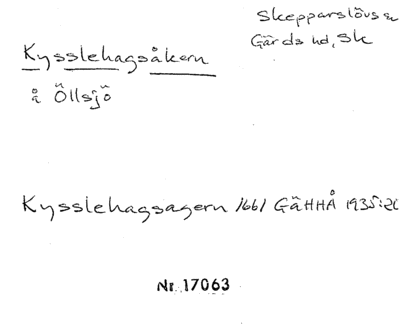 Skepparslövs sn
Gärds hd, Sk
Kysslehagsåkern
å Öllsjö
Kysslehagsagern 1661 GäHHÅ 1935:20
Nr. 17063